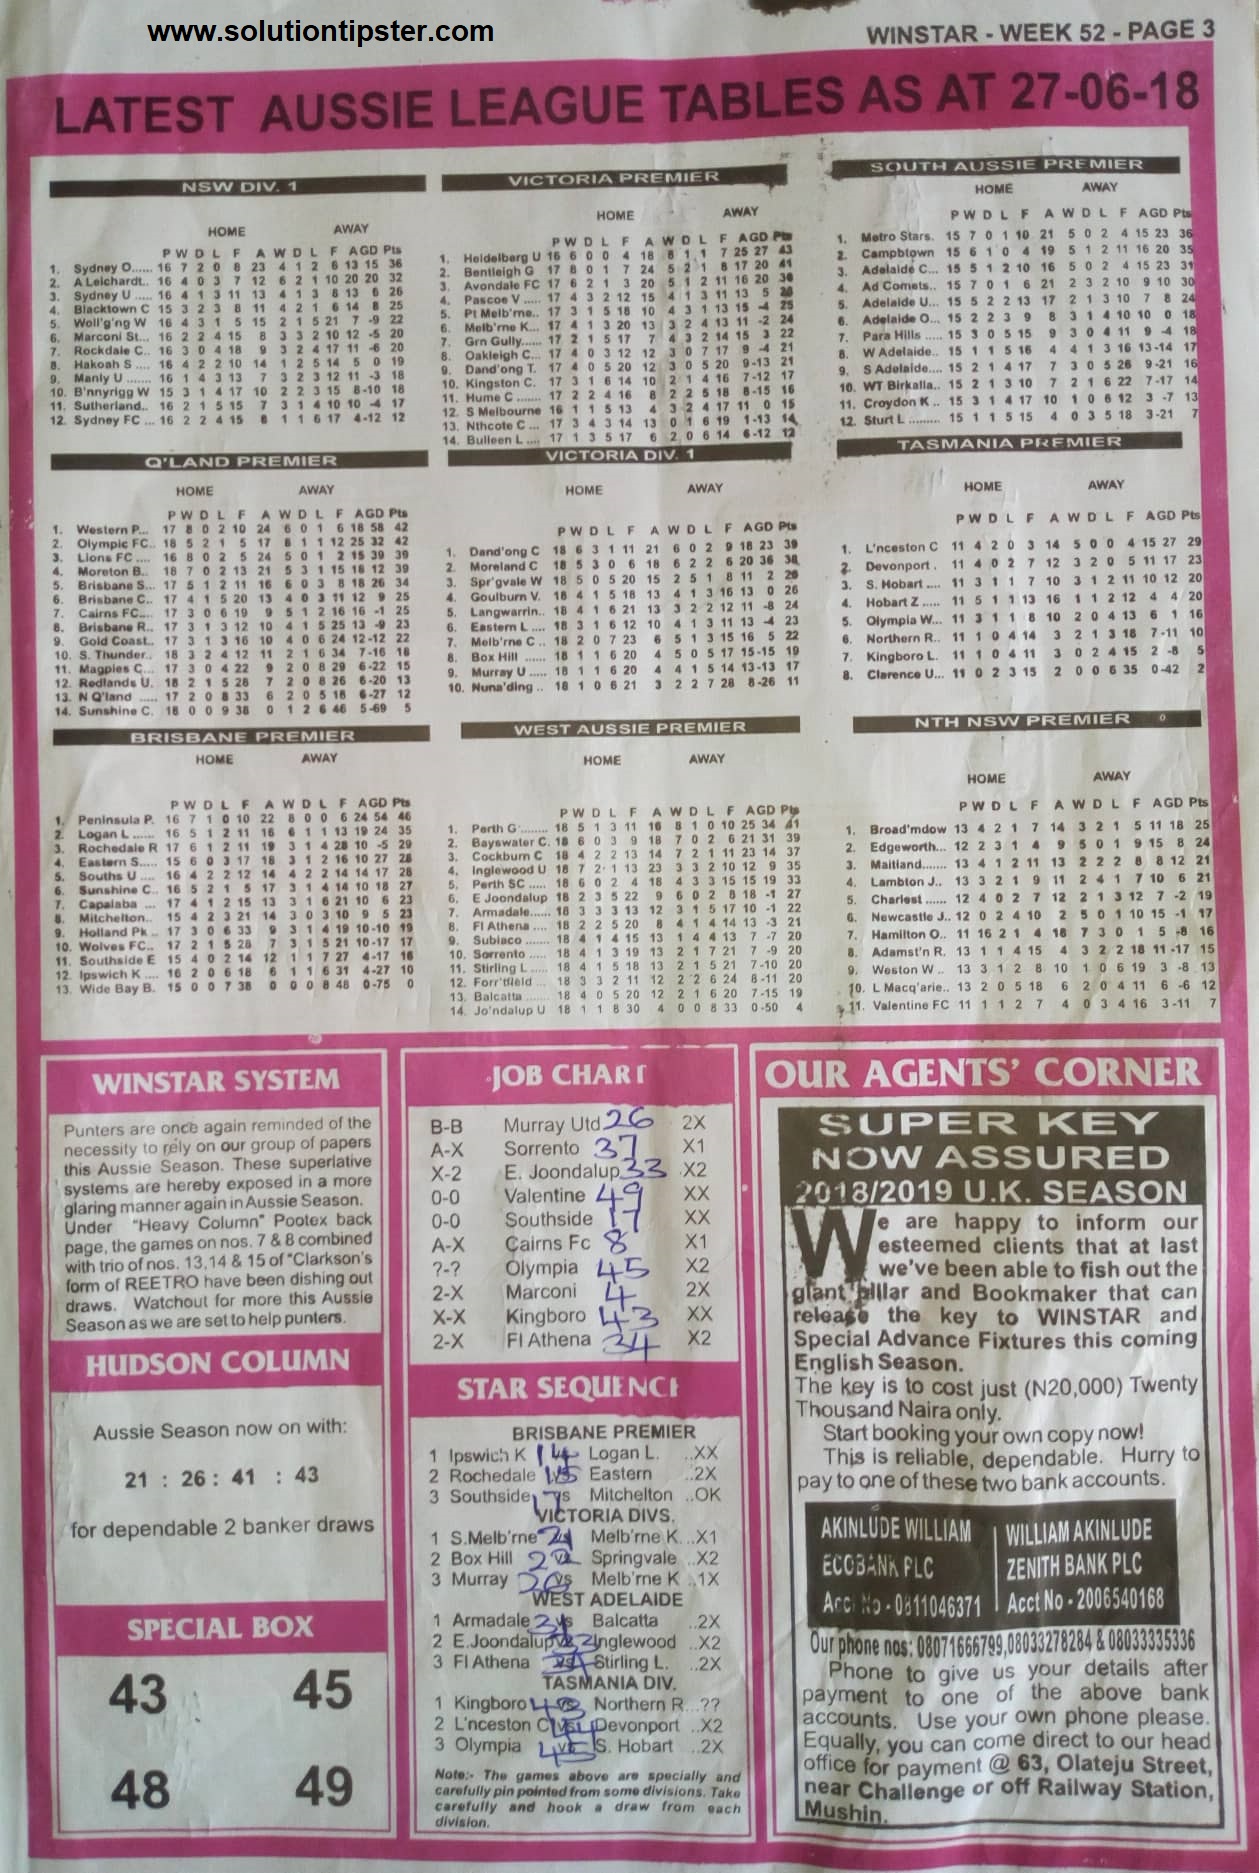 www.solutiontipster.com
WINSTAR - WEEK 52 - PAGE 3
LATEST AUSSIE LEAGUE TABLES AS AT 27-06-18
NSW DIV. 1
HOME AWAY
P W D L F A W D L F AGD Pts
1. Sydney O...... 16 7 2 0 8 23 4 1 2 6 13 15 36
2. A Leichardt.. 16 4 0 3 7 12 6 2 1 10 20 20 32
3. Sydney U ..... 16 4 1 3 11 13 4 1 3 8 13 6 26
4. Blacktown C 15 3 2 3 8 11 4 2 1 6 14 8 25
5. Woll'g'ng W 16 4 3 1 5 15 2 1 5 21 7 -9 22
6. Marconi St... 16 2 2 4 15 8 3 3 2 10 12 -5 20
7. Rockdale C.. 16 3 0 4 18 9 3 2 4 17 11 -6 20
8. Hakoah S .... 16 4 2 2 10 14 1 2 5 14 5 0 19
9. Manly U ....... 16 1 4 3 13 7 3 2 3 12 11 -3 18
10. B'nnyrigg W 15 3 1 4 17 10 2 2 3 15 8-10 18
11. Sutherland.. 16 2 1 5 15 7 3 1 4 10 10 -4 17
12. Sydney FC ... 16 2 2 4 15 8 1 1 6 17 4-12 12
VICTORIA PREMIER
HOME AWAY
P W D L F A W D L F AGD Pts
1. Heidelberg U 16 6 0 0 4 18 8 1 1 7 25 27 43
2. Bentleigh G 17 8 0 1 7 24 5 2 1 8 17 20 41
3. Avondale FC 17 6 2 1 3 20 5 1 2 11 16 20 36
4. Pascoe V ..... 17 4 3 2 12 15 4 1 3 11 13 5 26
5. Pt Melb'rne.. 17 3 1 5 18 10 4 3 1 13 15 -4 25
6. Melb'rne K... 17 4 1 3 20 13 3 2 4 13 11 -2 24
7. Grn Gully..... 17 2 1 5 17 7 4 3 2 14 15 3 22
8. Oakleigh C... 17 4 0 3 12 12 3 0 7 17 9 -4 21
9. Dand'ong T. 17 4 0 5 20 12 3 0 5 20 9-13 21
10. Kingston C. 17 3 1 6 14 10 2 1 4 16 7-12 17
11. Hume C ....... 17 2 2 4 16 8 2 2 5 18 8-15 16
12. S Melbourne 16 1 1 5 13 4 3 2 4 17 11 0 15
13. Nthcote C ... 17 3 4 3 14 13 0 1 6 19 1-13 14
14. Bulleen L .... 17 1 3 5 17 6 2 0 6 14 6-12 12
SOUTH AUSSIE PREMIER
HOME AWAY
P W D L F A W D L F AGD Pts
1. Metro Stars. 15 7 0 1 10 21 5 0 2 4 15 23 36
2. Campbtown 15 6 1 0 4 19 5 1 2 11 16 20 35
3. Adelaide C... 15 5 1 2 10 16 5 0 2 4 15 23 31
4. Ad Comets.. 15 7 0 1 6 21 2 3 2 10 9 10 30
5. Adelaide U... 15 5 2 2 13 17 2 1 3 10 7 8 24
6. Adelaide O... 15 2 2 3 9 8 3 1 4 10 10 0 18
7. Para Hills ..... 15 3 0 5 15 9 3 0 4 11 9 -4 18
8. W Adelaide.. 15 1 1 5 16 4 4 1 3 16 13-14 17
9. S Adelaide.... 15 2 1 4 17 7 3 0 5 26 9-21 16
10. WT Birkalla.. 15 2 1 3 10 7 2 1 6 22 7-17 14
11. Croydon K .. 15 3 1 4 17 10 1 0 6 12 3 -7 13
12. Sturt L ......... 15 1 1 5 15 4 0 3 5 18 3-21 7
Q'LAND PREMIER
HOME AWAY
P W D L F A W D L F AGD Pts
1. Western P... 17 8 0 2 10 24 6 0 1 6 18 58 42
2. Olympic FC.. 18 5 2 1 5 17 8 1 1 12 25 32 42
3. Lions FC .... 16 8 0 2 5 24 5 0 1 2 15 39 39
4. Moreton B.. 18 7 0 2 13 21 5 3 1 15 18 12 39
5. Brisbane S... 17 5 1 2 11 16 6 0 3 8 18 26 34
6. Brisbane C.. 17 4 1 5 20 13 4 0 3 11 12 9 25
7. Cairns FC.... 17 3 0 6 19 9 5 1 2 16 16 -1 25
8. Brisbane R.. 17 3 1 3 12 10 4 1 5 25 13 -9 23
9. Gold Coast.. 17 3 1 3 16 10 4 0 6 24 12-12 22
10. S. Thunder.. 18 3 2 4 12 11 2 1 6 34 7-16 18
11. Magpies C... 17 3 0 4 22 9 2 0 8 29 6-22 15
12. Redlands U. 18 2 1 5 28 7 2 0 8 26 6-20 13
13. N Q'land ..... 17 2 0 8 33 6 2 0 5 18 6-27 12
14. Sunshine C. 18 0 0 9 38 0 1 2 6 46 5-69 5
VICTORIA DIV. 1
HOME AWAY
P W D L F A W D L F AGD Pts
1. Dand'ong C 18 6 3 1 11 21 6 0 2 9 18 23 39
2. Moreland C 18 5 3 0 6 18 6 2 2 6 20 36 38
3. Spr'gvale W 18 5 0 5 20 15 2 5 1 8 11 2 26
4. Goulburn V. 18 4 1 5 18 13 4 1 3 16 13 0 26
5. Langwarrin.. 18 4 1 6 21 13 3 2 2 12 11 -8 24
6. Eastern L .... 18 3 1 6 12 10 4 1 3 11 13 -4 23
7. Melb'rne C .. 18 2 0 7 23 6 5 1 3 15 16 5 22
8. Box Hill ...... 18 1 1 6 20 4 5 0 5 17 15-15 19
9. Murray U .... 18 1 1 6 20 4 4 1 5 14 13-13 17
10. Nuna'ding .. 18 1 0 6 21 3 2 2 7 28 8-26 11
TASMANIA PREMIER
HOME AWAY
P W D L F A W D L F AGD Pts
1. L'nceston C 11 4 2 0 3 14 5 0 0 4 15 27 29
2. Devonport . 11 4 0 2 7 12 3 2 0 5 11 17 23
3. S. Hobart .... 11 3 1 1 7 10 3 1 2 11 10 12 20
4. Hobart Z ..... 11 5 1 1 13 16 1 1 2 12 4 4 20
5. Olympia W... 11 3 1 1 8 10 2 0 4 13 6 1 16
6. Northern R.. 11 1 0 4 14 3 2 1 3 18 7-11 10
7. Kingboro L. 11 1 0 4 11 3 0 2 4 15 2 -8 5
8. Clarence U... 11 0 2 3 15 2 0 0 6 35 0-42 2
BRISBANE PREMIER
HOME AWAY
P W D L F A W D L F AGD Pts
1. Peninsula P. 16 7 1 0 10 22 8 0 0 6 24 54 46
2. Logan L ...... 16 5 1 2 11 16 6 1 1 13 19 24 35
3. Rochedale R 17 6 1 2 11 19 3 1 4 28 10 -5 29
4. Eastern S..... 15 6 0 3 17 18 3 1 2 16 10 27 28
5. Souths U .... 16 4 2 2 12 14 4 2 2 14 14 17 28
6. Sunshine C.. 16 5 2 1 5 17 3 1 4 14 10 18 27
7. Capalaba ... 17 4 1 2 15 13 3 1 6 21 10 6 23
8. Mitchelton.. 15 4 2 3 21 14 3 0 3 10 9 5 23
9. Holland Pk .. 17 3 0 6 33 9 3 1 4 19 10-10 19
10. Wolves FC.. 17 2 1 5 28 7 3 1 5 21 10-17 17
11. Southside E 15 4 0 2 14 12 1 1 7 27 4-17 16
12. Ipswich K .... 16 2 0 6 18 6 1 1 6 31 4-27 10
13. Wide Bay B. 15 0 0 7 38 0 0 0 8 48 0-75 0
WEST AUSSIE PREMIER
HOME AWAY
P W D L F A W D L F AGD Pts
1. Perth G ........ 18 5 1 3 11 16 8 1 0 10 25 34 41
2. Bayswater C. 18 6 0 3 9 18 7 0 2 6 21 31 39
3. Cockburn C 18 4 2 2 13 14 7 2 1 11 23 14 37
4. Inglewood U 18 7 2 1 13 23 3 3 2 10 12 9 35
5. Perth SC ..... 18 6 0 2 4 18 4 3 3 15 15 19 33
6. E Joondalup 18 2 3 5 22 9 6 0 2 8 18 -1 27
7. Armadale...... 18 3 3 3 13 12 3 1 5 17 10 -1 22
8. Fl Athena .... 18 2 2 5 20 8 4 1 4 14 13 -3 21
9. Subiaco ...... 18 4 1 4 15 13 1 4 4 13 7 -7 20
10. Sorrento ..... 18 4 1 3 19 13 2 1 7 21 7 -9 20
11. Stirling L ..... 18 4 1 5 18 13 2 1 5 21 7-10 20
12. Forr'tfield ... 18 3 3 2 11 12 2 2 6 24 8-11 20
13. Balcatta ...... 18 4 0 5 20 12 2 1 6 20 7-15 19
14. Jo'ndalup U 18 1 1 8 30 4 0 0 8 33 0-50 4
NTH NSW PREMIER
HOME AWAY
P W D L F A W D L F AGD Pts
1. Broad'mdow 13 4 2 1 7 14 3 2 1 5 11 18 25
2. Edgeworth... 12 2 3 1 4 9 5 0 1 9 15 8 24
3. Maitland....... 13 4 1 2 11 13 2 2 2 8 8 12 21
4. Lambton J.. 13 3 2 1 9 11 2 4 1 7 10 6 21
5. Charlest ...... 12 4 0 2 7 12 2 1 3 12 7 -2 19
6. Newcastle J.. 12 0 2 4 10 2 5 0 1 10 15 -1 17
7. Hamilton O.. 11 16 2 1 4 18 7 3 0 1 5 -8 16
8. Adamst'n R. 13 1 1 4 15 4 3 2 2 18 11 -17 15
9. Weston W .. 13 3 1 2 8 10 1 0 6 19 3 -8 13
10. L Macq'arie.. 13 2 0 5 18 6 2 0 4 11 6 -6 12
11. Valentine FC 11 1 1 2 7 4 0 3 4 16 3-11 7
WINSTAR SYSTEM
Punters are once again reminded of the
necessity to rely on our group of papers
this Aussie Season. These superlative
systems are hereby exposed in a more
glaring manner again in Aussie Season.
Under "Heavy Column" Pootex back
page, the games on nos. 7 & 8 combined
with trio of nos. 13,14 & 15 of "Clarkson's
form of REETRO have been dishing out
draws. Watchout for more this Aussie
Season as we are set to help punters.
HUDSON COLUMN
Aussie Season now on with:
21 : 26 : 41 : 43
for dependable 2 banker draws
SPECIAL BOX
43 45
48 49
JOB CHART
B-B Murray Utd 26 2X
A-X Sorrento 37 X1
X-2 E. Joondalup 33 X2
0-0 Valentine 49 XX
0-0 Southside 17 XX
A-X Cairns Fc 8 X1
?-? Olympia 45 X2
2-X Marconi 4 2X
X-X Kingboro 43 XX
2-X Fl Athena 34 X2
STAR SEQUENCE
BRISBANE PREMIER
1 Ipswich K 14 Logan L. ..XX
2 Rochedale 15 vs Eastern ..2X
3 Southside 17 vs Mitchelton ..OK
VICTORIA DIVS.
1 S.Melb'rne 21 vs Melb'rne K...X1
2 Box Hill 22 vs Springvale ..X2
3 Murray 26 vs Melb'rne K ..1X
WEST ADELAIDE
1 Armadale 31 vs Balcatta ..2X
2 E.Joondalup vs 33 Inglewood ..X2
3 Fl Athena 34 vs Stirling L. ..2X
TASMANIA DIV.
1 Kingboro 43 vs Northern R...??
2 L'nceston C vs 44 Devonport ..X2
3 Olympia 45 vs S. Hobart ..2X
Note:- The games above are specially and
carefully pin pointed from some divisions. Take
carefully and hook a draw from each
division.
OUR AGENTS' CORNER
SUPER KEY
NOW ASSURED
2018/2019 U.K. SEASON
We are happy to inform our
esteemed clients that at last
we've been able to fish out the
giant pillar and Bookmaker that can
release the key to WINSTAR and
Special Advance Fixtures this coming
English Season.
The key is to cost just (N20,000) Twenty
Thousand Naira only.
Start booking your own copy now!
This is reliable, dependable. Hurry to
pay to one of these two bank accounts.
AKINLUDE WILLIAM
ECOBANK PLC
Acct No - 0811046371
WILLIAM AKINLUDE
ZENITH BANK PLC
Acct No - 2006540168
Our phone nos: 08071666799,08033278284 & 08033335336
Phone to give us your details after
payment to one of the above bank
accounts. Use your own phone please.
Equally, you can come direct to our head
office for payment @ 63, Olateju Street,
near Challenge or off Railway Station,
Mushin.